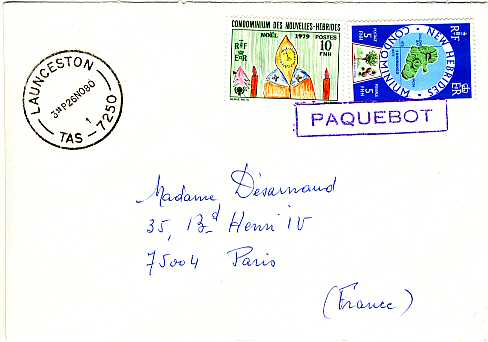 CONDOMINIUM DES NOUVELLES-HEBRIDES
NOËL 1979 POSTES
RF
EIIR
10
FNH
NEW HEBRIDES
CONDOMINIUM
RF
EIIR
5
5
LAUNCESTON
3-P26NO80
1
TAS - 7250
PAQUEBOT
Madame Désarnaud
35, Bd Henri IV
75004 Paris
(France)